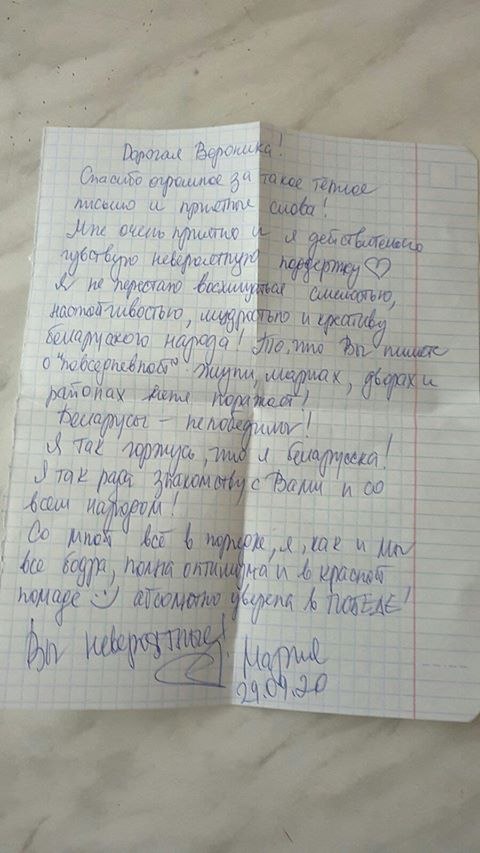 Дорогая Вероника!
Спасибо огромное за такое тёплое
письмо и приятные слова!
Мне очень приятно и я действительно
чувствую невероятную поддержку ♡
Я не перестаю восхищаться смелостью,
настойчивостью, мудростью и креативу
беларуского народа! То, что Вы пишете
о "повседневной" жизни, маршах, дворах и
районах меня поражает!
Беларусы – непобедимы!
Я так горжусь, что я беларуска!
Я так рада знакомству с Вами и со
всем народом!
Со мной всё в порядке, я, как и мы
все бодра, полна оптимизма и в красной
помаде абсолютно уверена в ПОБЕДЕ!
Вы невероятные!
Мария
29.09.20